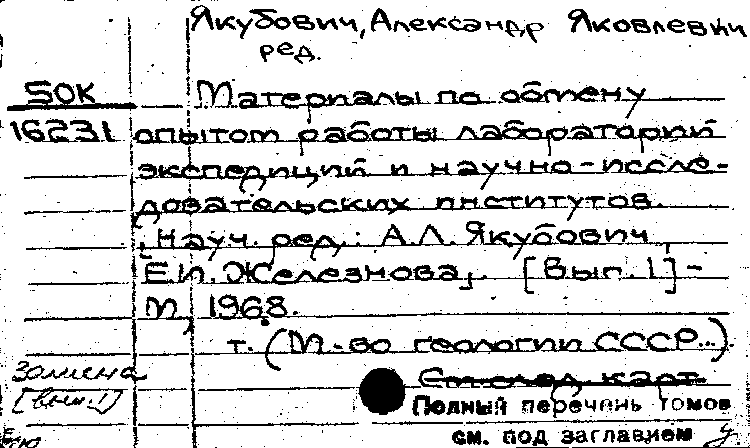 Якубович, Александр Яковлевич
ред.
50К Материалы по обмену
16231 опытом работы лабораторий
экспедиций и научно-иссле-
довательских институтов.
, Науч. ред.: А.Л. Якубович,
Е.И. Железнова,. [Вып. 1] -
М, 1968.
т. (М-во геологии СССР...).
Замена
См. след. карт.
[вып. 1]
Полный перечень томов
см. под заглавием